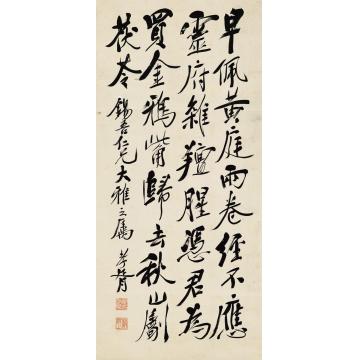 早佩黃庭兩卷經不應
靈府雜羶腥憑君為
買金鴉嘴歸去秋山劚
茯苓 錫吾仁兄大雅之屬 孝胥